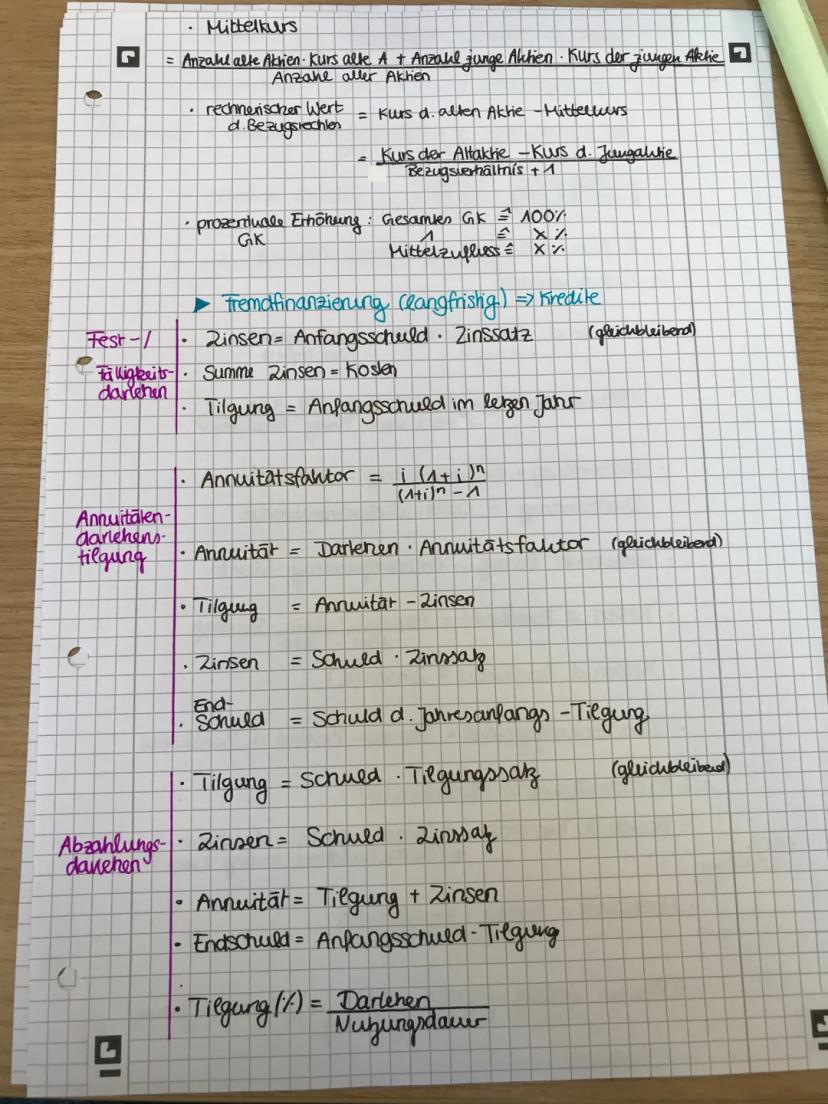 · Mittelkurs
= Anzahl alte Aktien · Kurs alte A + Anzahl junge Aktien · Kurs der jungen Aktie
Anzahl aller Aktien
· rechnerischer Wert = Kurs d. alten Aktie - Mittelkurs
d. Bezugsrechtes
= Kurs der Altaktie - Kurs d. Jungaktie
Bezugsverhältnis + 1
· prozentuale Erhöhung: Gesamtes GK ≙ 100%
GK 1 ≙ X %
Mittelzufluss ≙ X %
► Fremdfinanzierung (langfristig) => Kredite
Fest-/ · Zinsen = Anfangsschuld · Zinssatz (gleichbleibend)
Fälligkeits- · Summe Zinsen = Kosten
darlehen
· Tilgung = Anfangsschuld im letzen Jahr
· Annuitätsfaktor = i (1+i)^n
(1+i)^n - 1
Annuitäten-
darlehens-
tilgung
· Annuität = Darlehen · Annuitätsfaktor (gleichbleibend)
· Tilgung = Annuität - Zinsen
· Zinsen = Schuld · Zinssatz
End-
· Schuld = Schuld d. Jahresanfangs - Tilgung
· Tilgung = Schuld · Tilgungssatz (gleichbleibend)
Abzahlungs- · Zinsen = Schuld · Zinssatz
darlehen
· Annuität = Tilgung + Zinsen
· Endschuld = Anfangsschuld - Tilgung
· Tilgung (%) = Darlehen
Nutzungsdauer